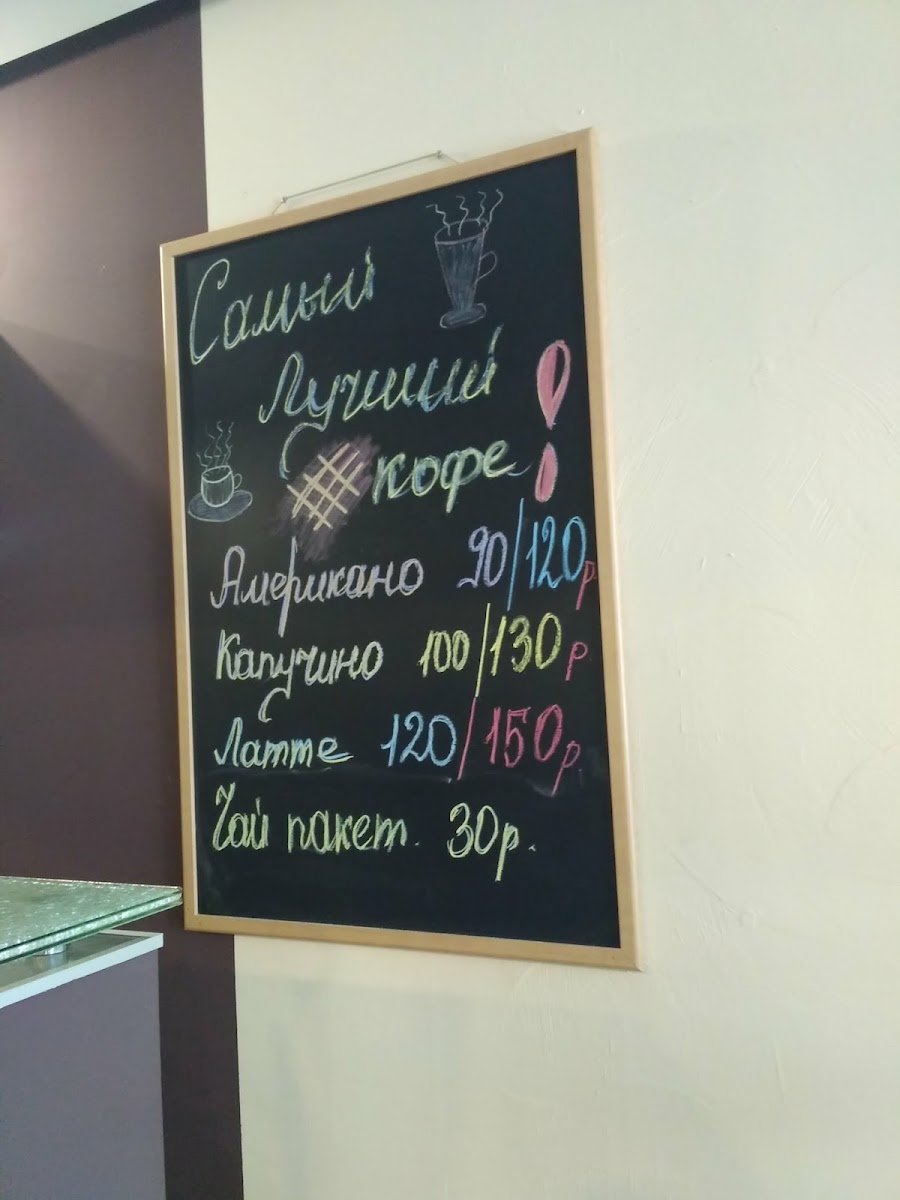 Самый
Лучший
кофе!
Американо 90/120р
Капучино 100/130р
Латте 120/150р.
Чай пакет. 30р.